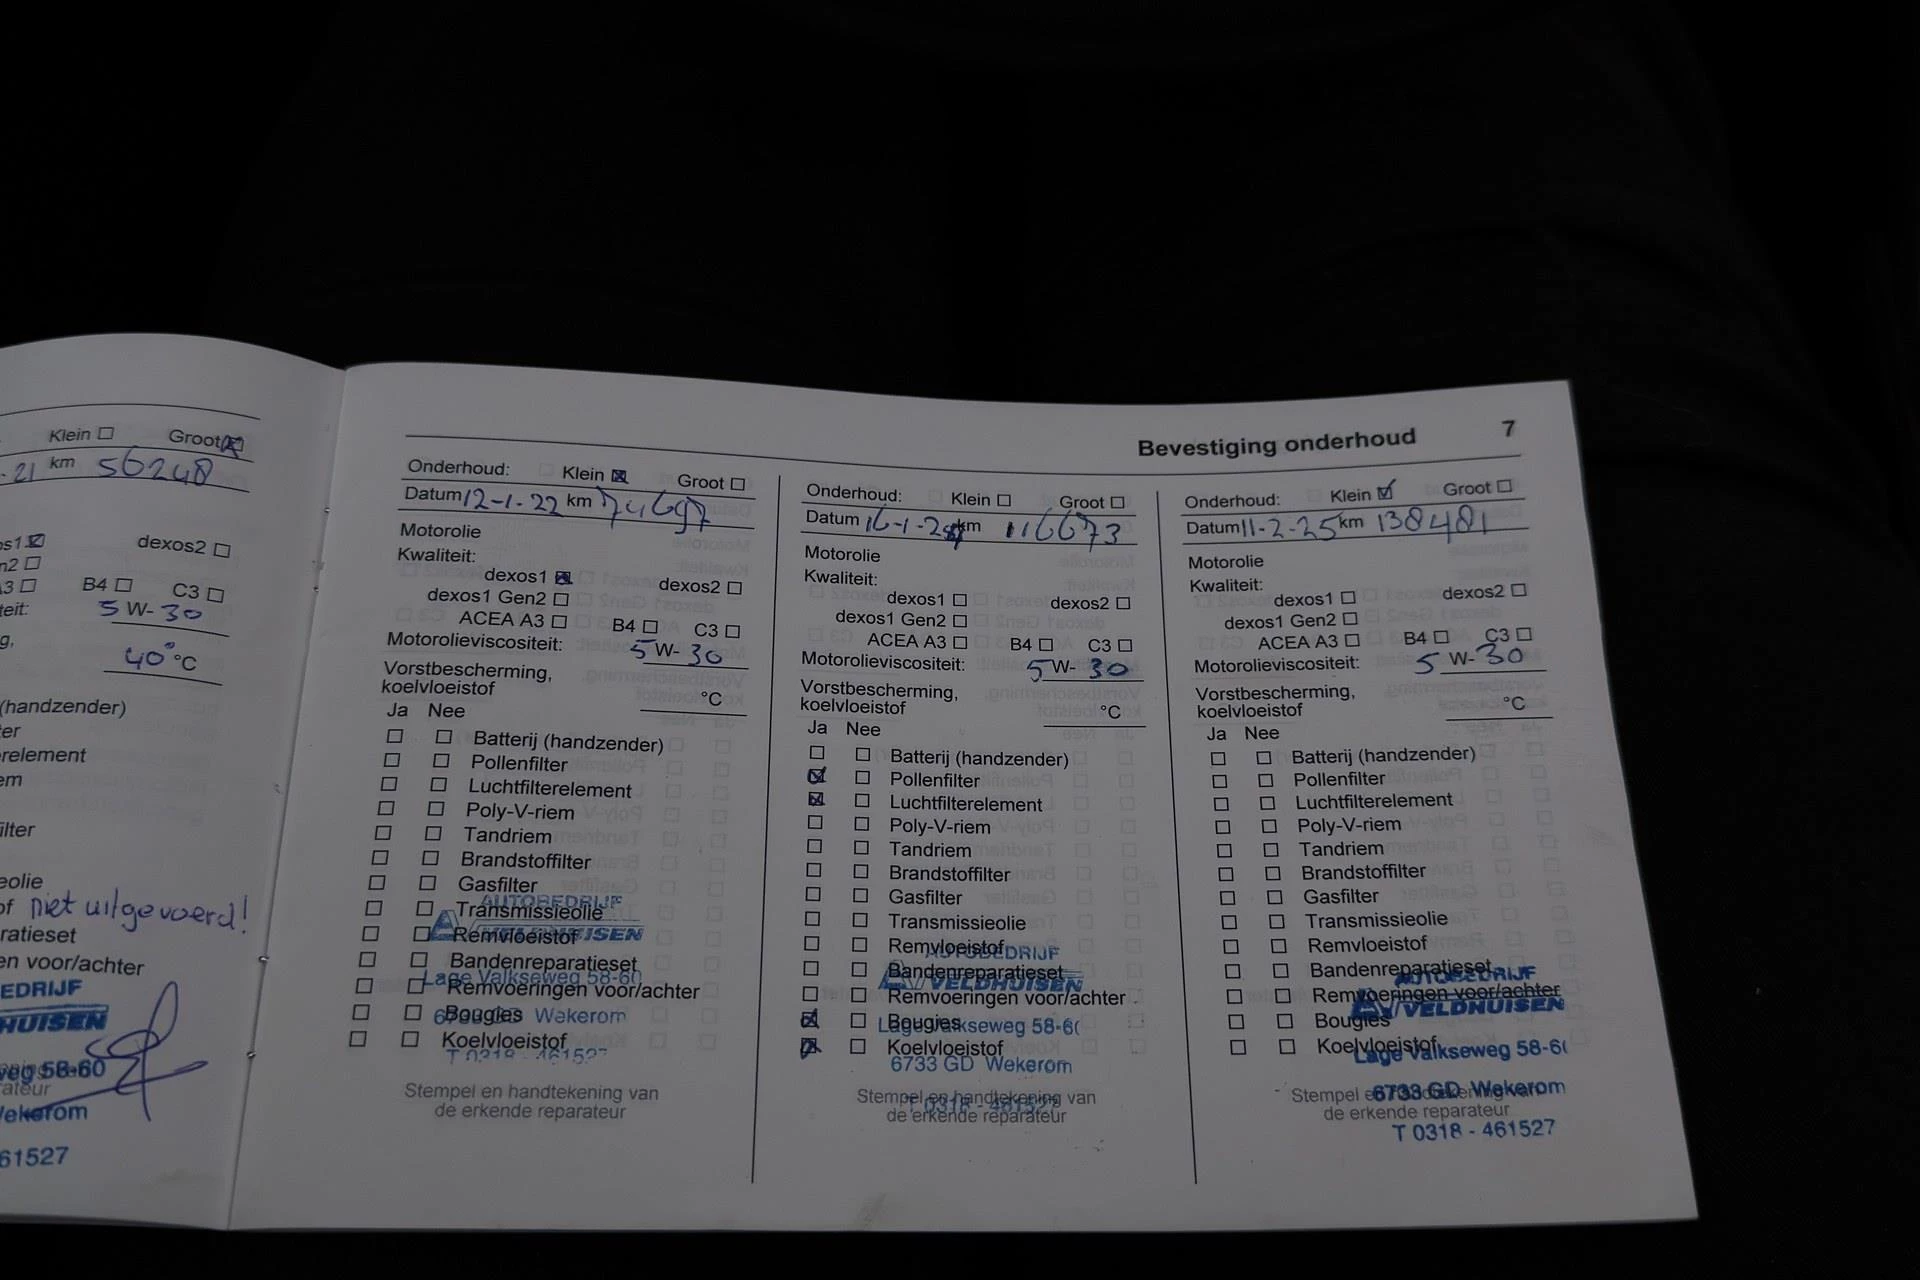 Klein Groot
-21 km 56248
s1 dexos2
n2
A3 B4 C3
teit: 5 W-30
g,
40° °C
(handzender)
ter
erelement
em
filter
eolie
of niet uitgevoerd!
ratieset
en voor/achter
EDRIJF
HUISEN
weg 58-60
rateur
Wekerom
61527
Bevestiging onderhoud 7
Onderhoud: Klein Groot
Datum 12-1-22 km 74697
Motorolie
Kwaliteit:
dexos1 dexos2
dexos1 Gen2
ACEA A3 B4 C3
Motorolieviscositeit: 5 W-30
Vorstbescherming,
koelvloeistof °C
Ja Nee
Batterij (handzender)
Pollenfilter
Luchtfilterelement
Poly-V-riem
Tandriem
Brandstoffilter
Gasfilter
Transmissieolie
Remvloeistof
Bandenreparatieset
Remvoeringen voor/achter
Bougies
Koelvloeistof
AUTOBEDRIJF
VELDHUISEN
Lage Valkseweg 58-60
6733 GD Wekerom
T 0318 - 461527
Stempel en handtekening van
de erkende reparateur
Onderhoud: Klein Groot
Datum 16-1-24 km 116673
Motorolie
Kwaliteit:
dexos1 dexos2
dexos1 Gen2
ACEA A3 B4 C3
Motorolieviscositeit: 5 W-30
Vorstbescherming,
koelvloeistof °C
Ja Nee
Batterij (handzender)
Pollenfilter
Luchtfilterelement
Poly-V-riem
Tandriem
Brandstoffilter
Gasfilter
Transmissieolie
Remvloeistof
Bandenreparatieset
Remvoeringen voor/achter
Bougies
Koelvloeistof
AUTOBEDRIJF
VELDHUISEN
Lage Valkseweg 58-60
6733 GD Wekerom
T 0318 - 461527
Stempel en handtekening van
de erkende reparateur
Onderhoud: Klein Groot
Datum 11-2-25 km 138481
Motorolie
Kwaliteit:
dexos1 dexos2
dexos1 Gen2
ACEA A3 B4 C3
Motorolieviscositeit: 5 W-30
Vorstbescherming,
koelvloeistof °C
Ja Nee
Batterij (handzender)
Pollenfilter
Luchtfilterelement
Poly-V-riem
Tandriem
Brandstoffilter
Gasfilter
Transmissieolie
Remvloeistof
Bandenreparatieset
Remvoeringen voor/achter
Bougies
Koelvloeistof
AUTOBEDRIJF
VELDHUISEN
Lage Valkseweg 58-60
6733 GD Wekerom
T 0318 - 461527
Stempel en handtekening van
de erkende reparateur